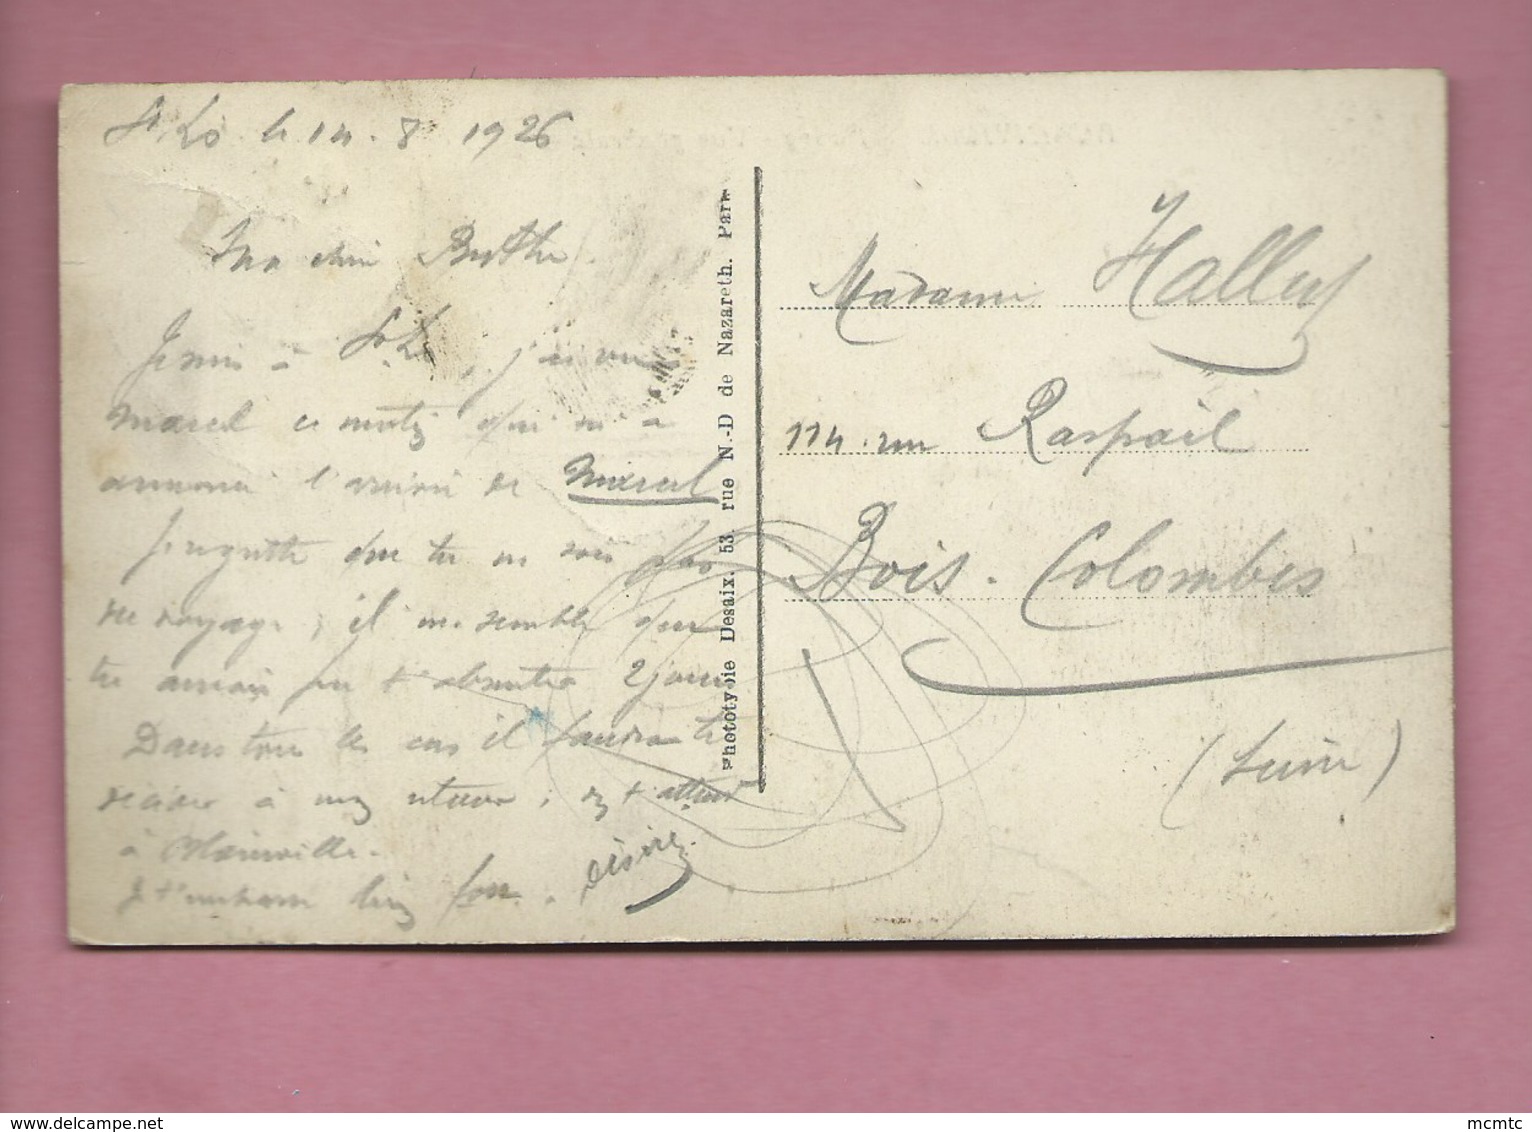 St Lo le 14-8 1926
Ma chère Berthe.
Je suis à St Lo, j'ai vu
Marcel ce matin qui m'a
annoncé l'arrivée de Marcel
je regrette que tu ne sois pas
du voyage, il me semble que
tu aurais pu t'absenter 2 jours
Dans tous les cas il faudra te
décider à m'y
à Blainville.
Je t'embrasse bien fort. Désiré
Phototypie Desaix. 53, rue N.-D de Nazareth. Paris
Madame Halley
114 rue Raspail
Bois-Colombes
(Seine)
www.delcampe.net
mcmtc